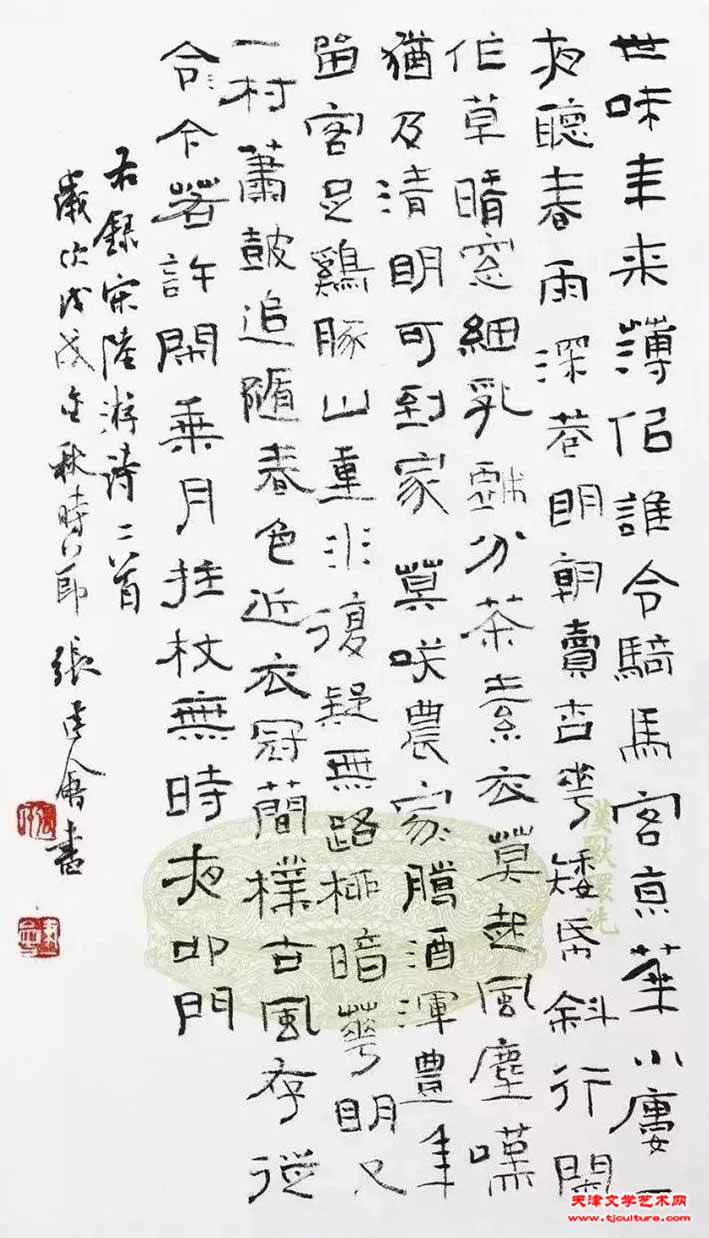 世味年来薄佀誰令騎馬客京華小廔一
夜聽春雨深巷明朝賣杏華矮帋斜行閑
作草晴窓細乳戲分茶素衣莫起風塵嘆
猶及清明可到家莫咲農家臘酒渾豊年
留客足鷄豚山重水復疑無路柳暗華明又
一村蕭鼓追隨春色近衣冠簡樸古風存從
今今若許閑乘月拄杖無時夜叩門
右錄宋陸游詩二首
歲次戊戌金秋時節張建會書
漢獸環洗
天津文学艺术网
www.tjculture.com